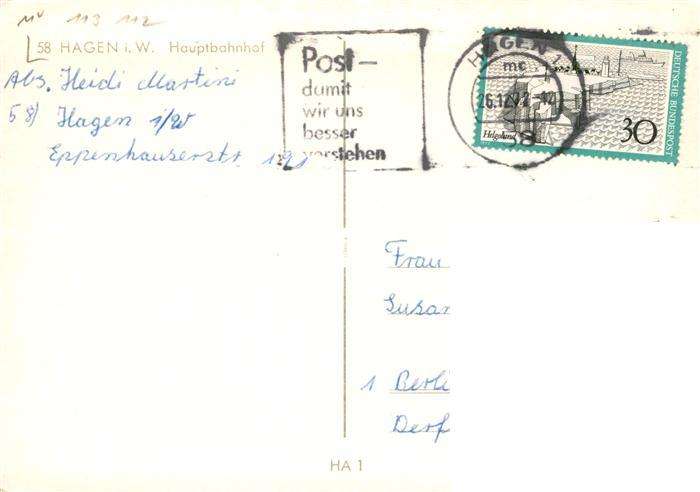 113 112
58 HAGEN i. W. Hauptbahnhof
Abs. Heidi Martini
58) Hagen i/W
Eppenhauserstr. 191
Post-
damit
wir uns
besser
verstehen
HAGEN
mc
58
Helgoland
30
DEUTSCHE BUNDESPOST
Frau
Susan
1 Berli
Derf
HA 1